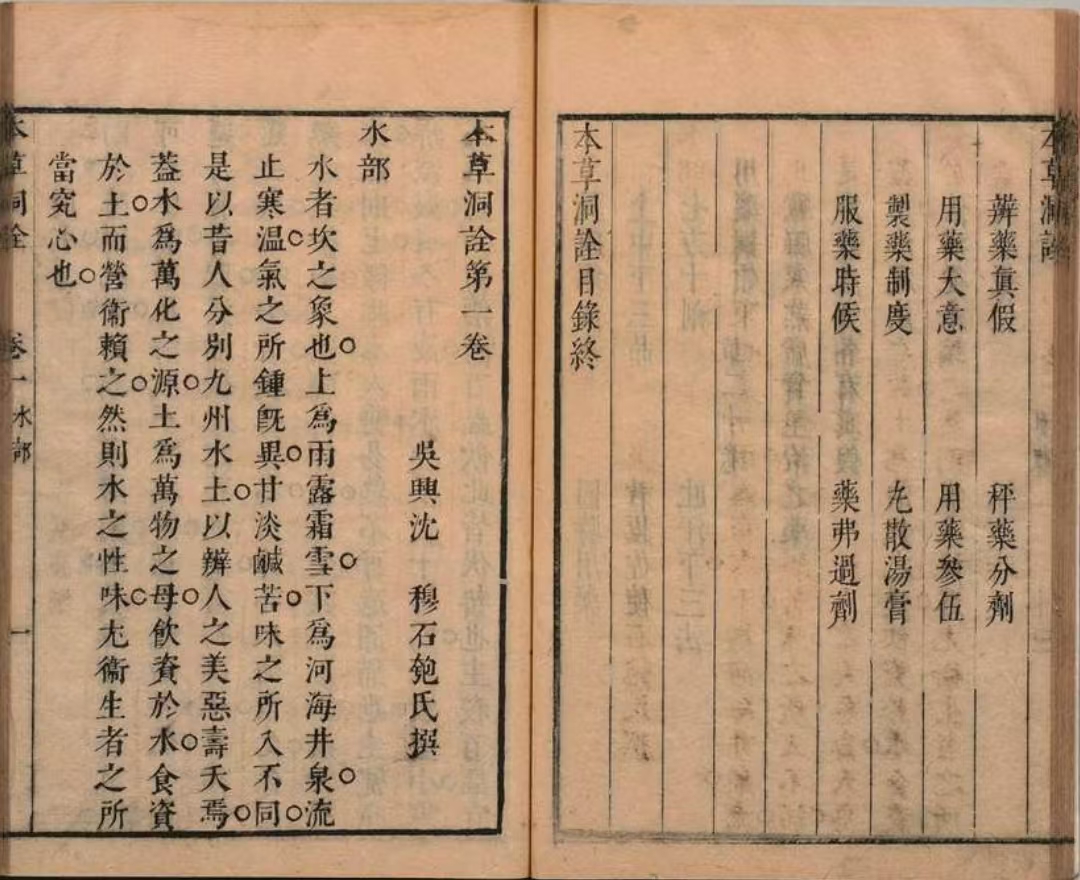 本草洞詮
辨藥眞假　秤藥分劑
用藥大意　用藥參伍
製藥制度　丸散湯膏
服藥時候　藥弗過劑
本草洞詮目錄終
本草洞詮第一卷
吳興沈　穆石匏氏撰
水部
水者坎之象也上爲雨露霜雪下爲河海井泉流
止寒温氣之所鍾旣異甘淡鹹苦味之所入不同
是以昔人分別九州水土以辨人之美惡壽夭焉
葢水爲萬化之源土爲萬物之母飮資於水食資
於土而營衞賴之然則水之性味尤衞生者之所
當究心也
本草洞詮　卷一　水部　一